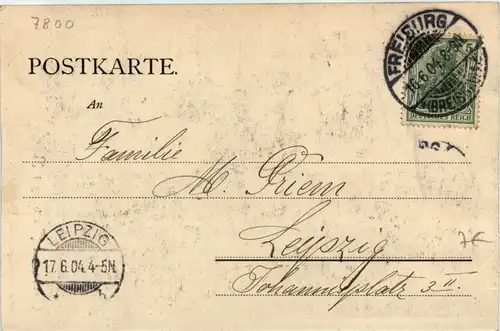 7800
POSTKARTE.
An
Familie
M. Priem
Leipzig
Johannisplatz 3 II.
7€
FREIBURG
16.6.04.8-9N
(BREISGAU)
DEUTSCHES REICH
LEIPZIG
17.6.04.4-5N.